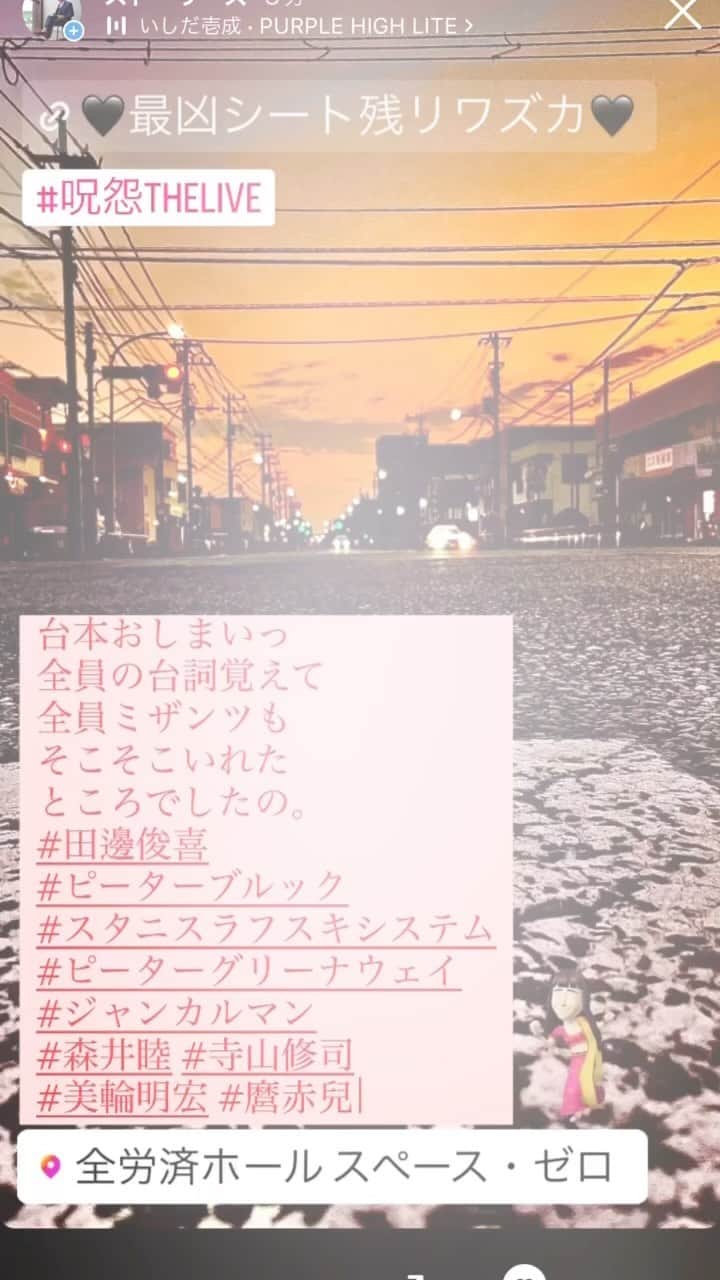 いしだ壱成・PURPLE HIGH LITE >
🖤最凶シート残リワズカ🖤
#呪怨THELIVE
台本おしまいっ
全員の台詞覚えて
全員ミザンツも
そこそこいれた
ところでしたの。
#田邊俊喜
#ピーターブルック
#スタニスラフスキシステム
#ピーターグリーナウェイ
#ジャンカルマン
#森井睦 #寺山修司
#美輪明宏 #麿赤兒
全労済ホールスペース・ゼロ